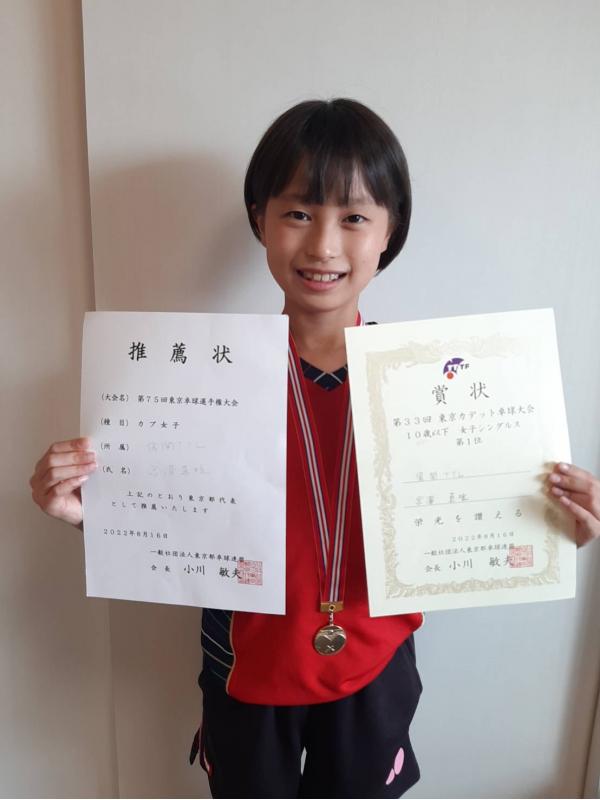 推薦状
(大会名) 第75回東京卓球選手権大会
(種目) カブ女子
(所属)
(氏名)
上記のとおり東京都代表
として推薦いたします
2022年8月16日
一般社団法人東京都卓球連盟
会長 小川 敏夫
TTF
賞状
第33回 東京カデット卓球大会
10歳以下 女子シングルス
第1位
栄光を讃える
2022年8月16日
一般社団法人東京都卓球連盟
会長 小川 敏夫